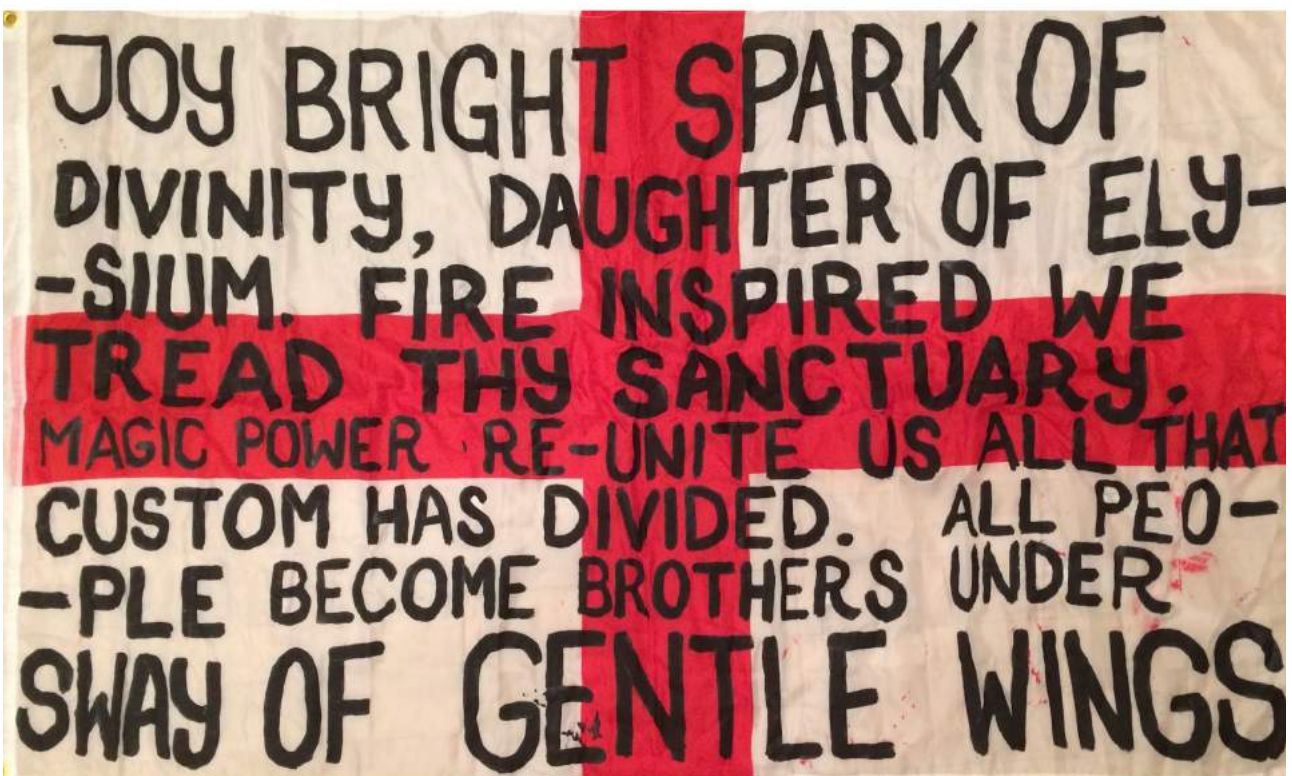 JOY BRIGHT SPARK OF
DIVINITY, DAUGHTER OF ELY-
-SIUM. FIRE INSPIRED WE
TREAD THY SANCTUARY.
MAGIC POWER RE-UNITE US ALL THAT
CUSTOM HAS DIVIDED. ALL PEO-
-PLE BECOME BROTHERS UNDER
SWAY OF GENTLE WINGS